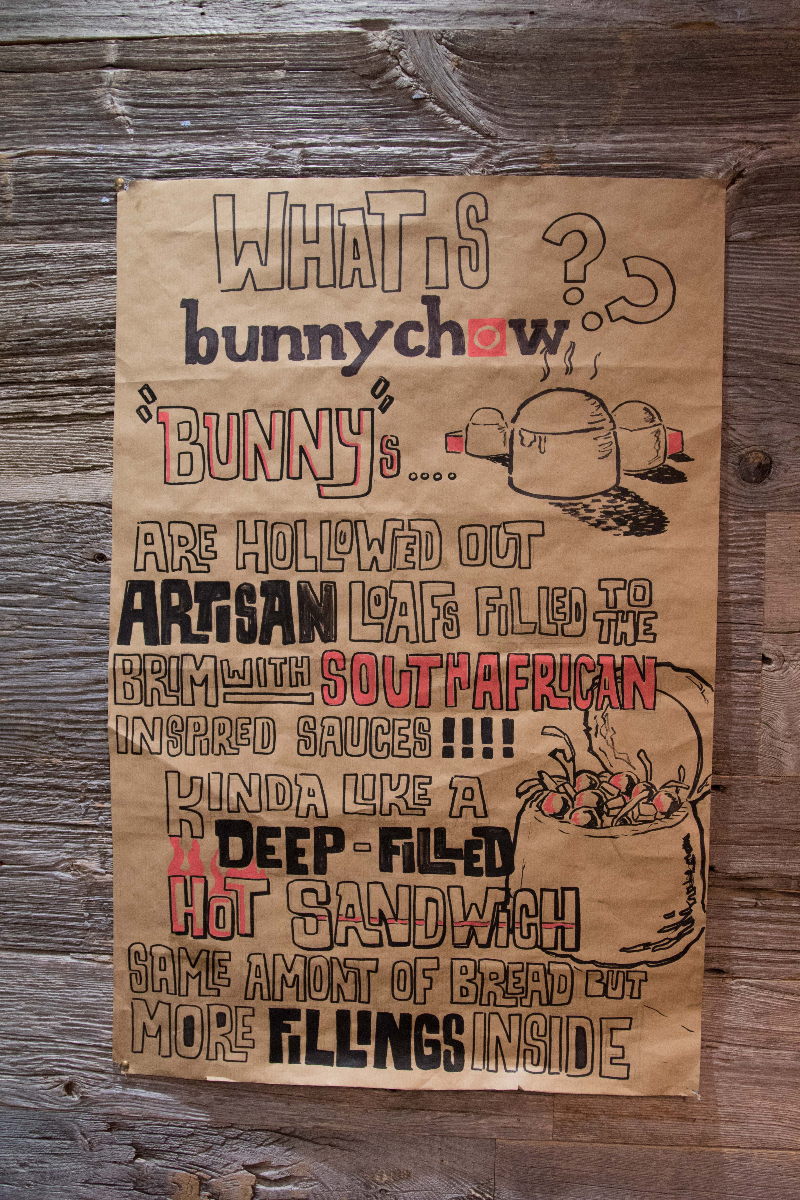 WHAT IS ??
bunnychow
"BUNNY"s ....
ARE HOLLOWED OUT
ARTISAN LOAFS FILLED TO THE
BRIM WITH SOUTH AFRICAN
INSPIRED SAUCES !!!!
KINDA LIKE A
DEEP-FILLED
HOT SANDWICH
SAME AMONT OF BREAD BUT
MORE FILLINGS INSIDE